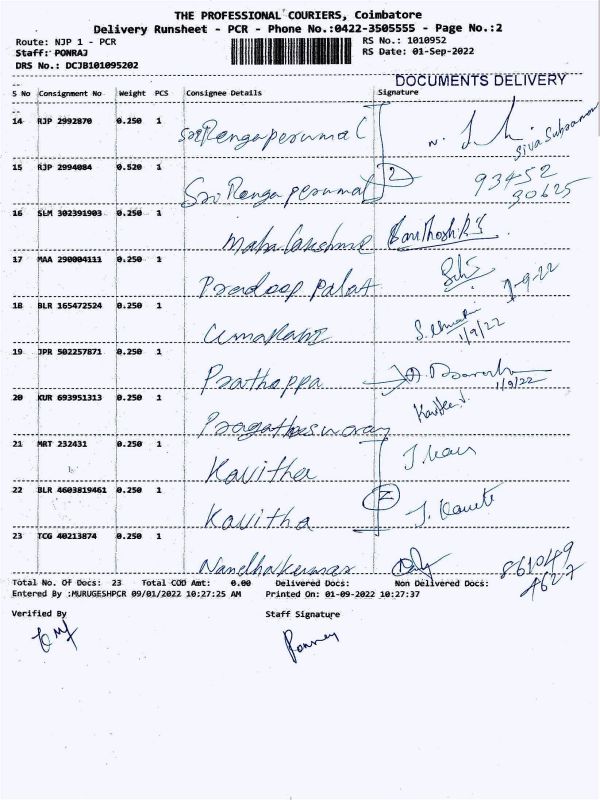 THE PROFESSIONAL COURIERS, Coimbatore
Delivery Runsheet - PCR - Phone No.:0422-3505555 - Page No.:2
Route: NJP 1 - PCR
RS No.: 1010952
Staff: PONRAJ
RS Date: 01-Sep-2022
DRS No.: DCJB101095202
DOCUMENTS DELIVERY
S No Consignment No Weight PCS Consignee Details Signature
14 RJP 2992870 0.250 1 Sri Rengaperumal
Siva Subraman
15 RJP 2994084 0.520 1 Sri Rengaperumal 2 93452
30625
16 SLM 302391903 0.250 1 Mahalakshmi
17 MAA 290004111 0.250 1 Pradeep Palat 1-9-22
18 BLR 165472524 0.250 1 Umarani
1/9/22
19 JPR 502257871 0.250 1 Prathappa
1/9/22
20 KUR 693951313 0.250 1 Pragatheeswaran
21 MRT 232431 0.250 1 Kavitha
22 BLR 4603819461 0.250 1 Kavitha 2
23 TCG 40213874 0.250 1 Nandhakumar 8610449
4627
Total No. Of Docs: 23 Total COD Amt: 0.00 Delivered Docs: Non Delivered Docs:
Entered By :MURUGESHPCR 09/01/2022 10:27:25 AM Printed On: 01-09-2022 10:27:37
Verified By Staff Signature